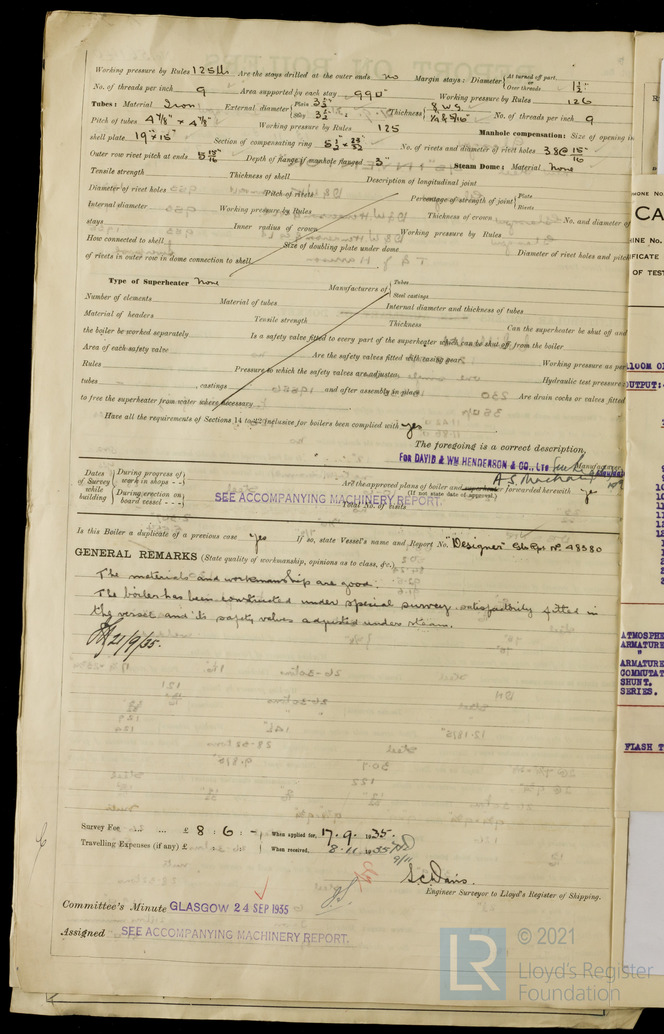 Working pressure by Rules 125 lb Are the stays drilled at the outer ends no Margin stays: Diameter { At turned off part, or Over threads 1½"
No. of threads per inch 9 Area supported by each stay 990" Working pressure by Rules 126
Tubes: Material Iron External diameter { Plain 3½" Stay 3½" Thickness { 8 W.G. ¼ & 5/16" No. of threads per inch 9
Pitch of tubes 4⅞" x 4⅞" Working pressure by Rules 125 Manhole compensation: Size of opening in
shell plate 19" x 15" Section of compensating ring No. of rivets and diameter of rivet holes 38 @ 15/16"
Outer row rivet pitch at ends Depth of flange if manhole flanged 3" Steam Dome: Material None
Tensile strength Thickness of shell Description of longitudinal joint
Diameter of rivet holes Pitch of rivets Percentage of strength of joint { Plate Rivets
Internal diameter Working pressure by Rules Thickness of crown No. and diameter of
stays Inner radius of crown Working pressure by Rules
How connected to shell Size of doubling plate under dome Diameter of rivet holes and pitch
of rivets in outer row in dome connection to shell
Type of Superheater None Manufacturers of { Tubes Steel castings
Number of elements Material of tubes Internal diameter and thickness of tubes
Material of headers Tensile strength Thickness Can the superheater be shut off and
the boiler be worked separately Is a safety valve fitted to every part of the superheater which can be shut off from the boiler
Area of each safety valve Are the safety valves fitted with easing gear Working pressure as per
Rules Pressure to which the safety valves are adjusted Hydraulic test pressure:
tubes , castings and after assembly in place Are drain cocks or valves fitted
to free the superheater from water where necessary
Have all the requirements of Sections 14 to 22 inclusive for boilers been complied with yes
The foregoing is a correct description,
FOR DAVID & WM HENDERSON & CO., LTD Manufacturer.
Dates of Survey while building { During progress of work in shops - - During erection on board vessel - - -
SEE ACCOMPANYING MACHINERY REPORT.
Are the approved plans of boiler and superheater forwarded herewith yes
(If not state date of approval.)
Total No. of visits
Is this Boiler a duplicate of a previous case yes If so, state Vessel's name and Report No. "Designer" Gls Rpt No 48380
GENERAL REMARKS (State quality of workmanship, opinions as to class, &c.)
The materials and workmanship are good.
The boiler has been constructed under special survey, satisfactorily fitted in
the vessel and its safety valves adjusted under steam.
21/9/35.
Survey Fee ... ... £ 8 : 6 : - When applied for, 17.9.1935.
Travelling Expenses (if any) £ : : When received, 8.11.1935
9/11
S. C. Davis.
Engineer Surveyor to Lloyd's Register of Shipping.
Committee's Minute GLASGOW 24 SEP 1935
Assigned SEE ACCOMPANYING MACHINERY REPORT.
LR © 2021
Lloyd's Register
Foundation
HONE No.
CA
INE No.
IFICATE
OF TEST
LOOM OF
UTPUT:
ATMOSPHE
ARMATURE
"
ARMATURE
COMMUTAT
SHUNT.
SERIES.
FLASH T